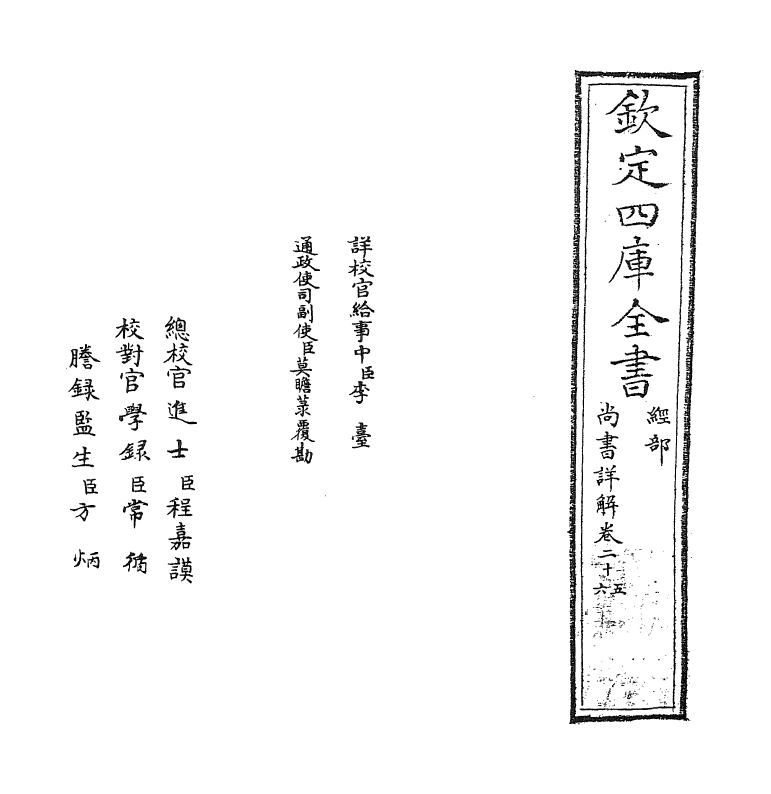 欽定四庫全書
經部
尚書詳解卷二十五六
詳校官給事中臣李臺
通政使司副使臣莫瞻菉覆勘
總校官進士臣程嘉謨
校對官學録臣常循
謄録監生臣方炳